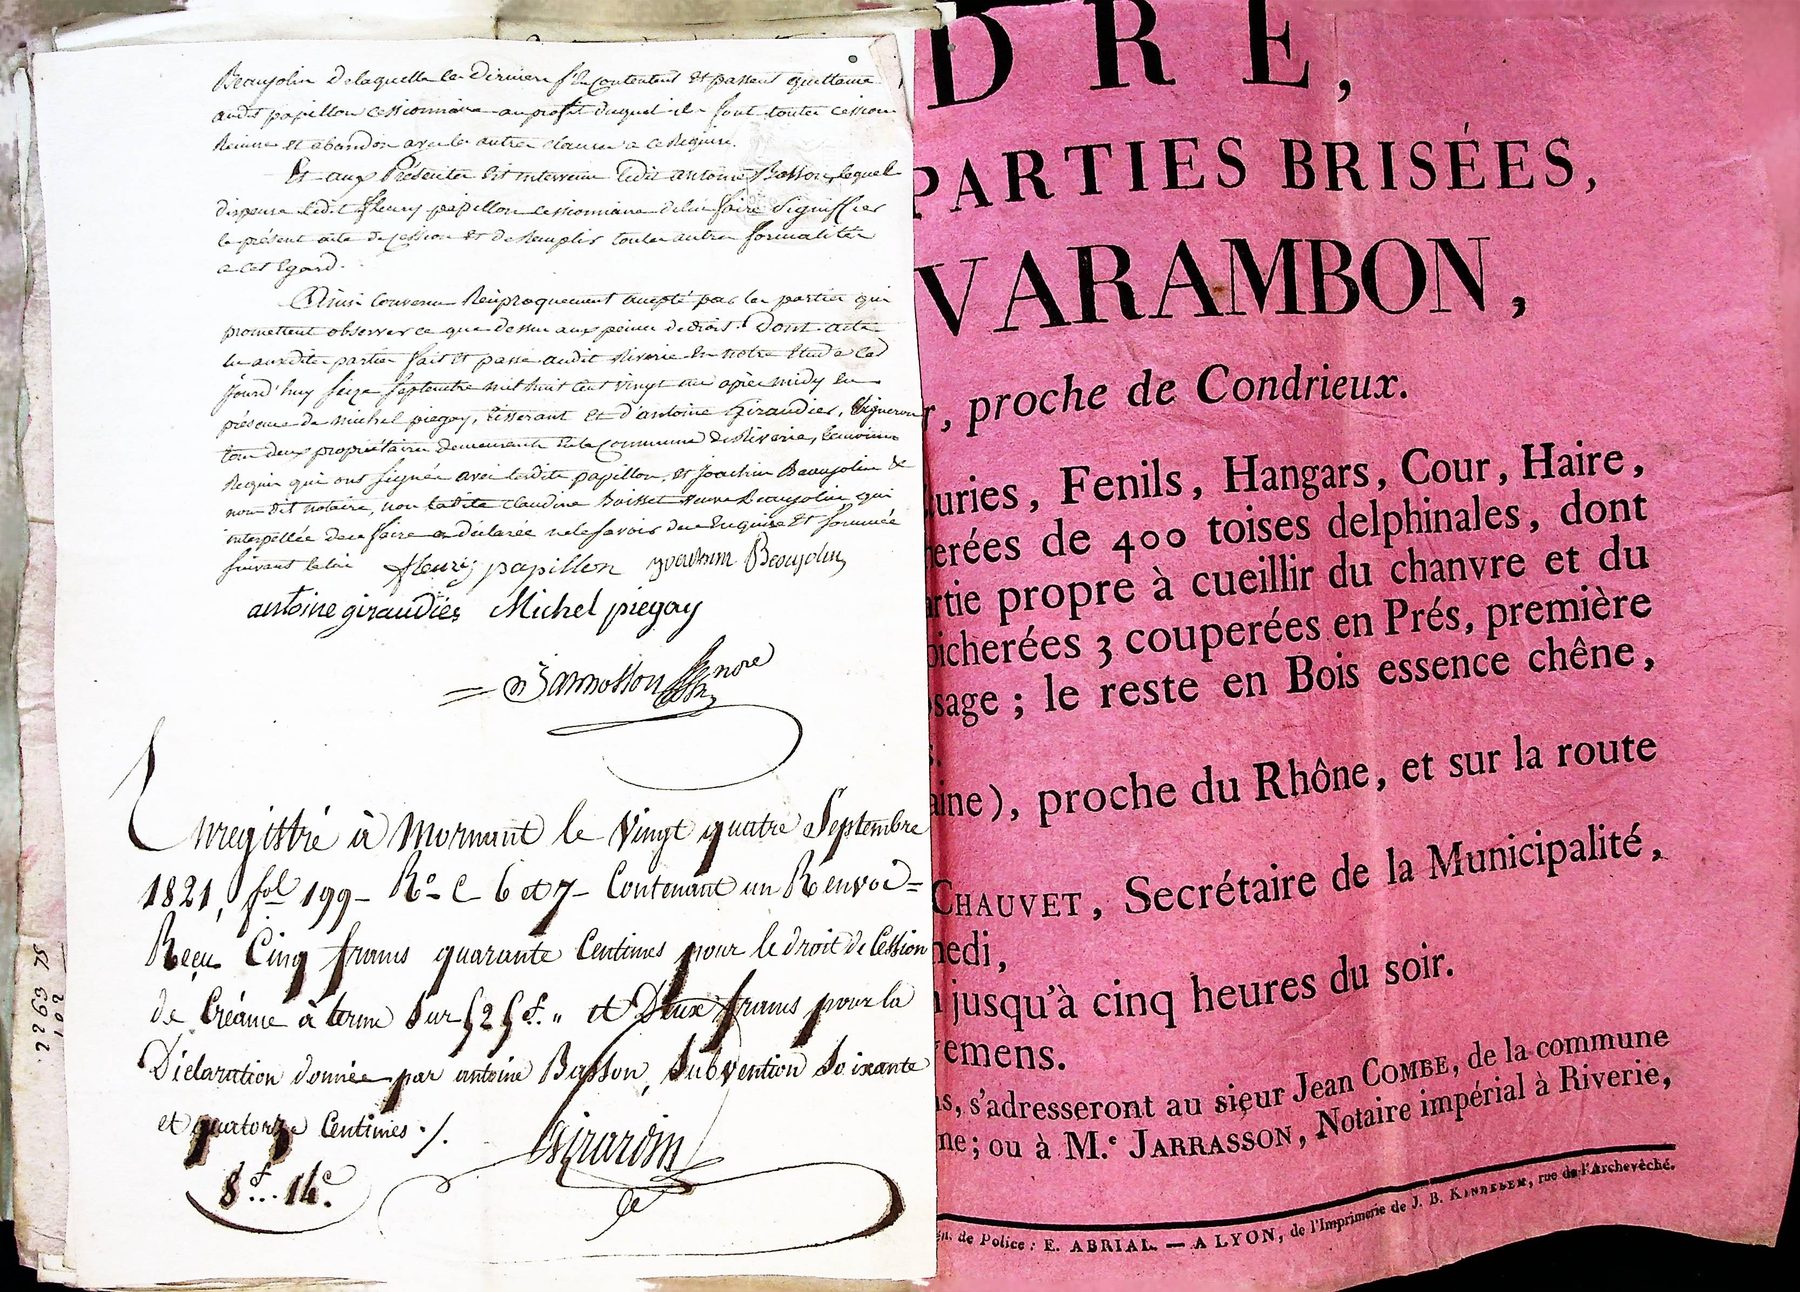 Beaujolin de laquelle ce dernier se contentent et passent quittance
audit papillon cessionnaire au profit duquel il font toutes cession
Remise et abandon avec les autres clauses a ce Requise.
Et aux Présentes est intervenu ledit antoine Basson, lequel
dispense ledit fleury papillon cessionnaire de lui faire signiffier
le présent acte de cession et de remplir toutes autres formalités
a cet Egard.
Ainsi convenu Réciproquement accepté par les parties qui
promettent observer ce que dessus aux peines de droit. Dont acte
lu auxdites parties fait et passé audit Riverie En notre Etude Ce
Jourd'huy seize septembre mil huit cent vingt un après midy En
présence de michel piegay, tisserant Et d'antoine Giraudier, Vigneron
tous deux propriétaires demeurants en la Commune de Riverie, témoins
Requis qui ont signé avec ledit papillon, et Joachim Beaujolin &
nous dit notaire, non ladite claudine Boisset veuve Beaujolin qui
interpellée de ce faire a déclarée ne le savoir de ce Enquise Et sommée
suivant la loi fleury papillon Beaujolin
antoine giraudier Michel piegay
nore
Enregistré à Mornant le Vingt quatre Septembre
1821, fol 199 - Ro C 6 et 7 - Contenant un Renvoi =
Reçu Cinq francs quarante Centimes pour le droit de Cession
de Créance à terme Sur 525f. " et Deux francs pour la
Déclaration donnée par antoine Basson, Subvention Soixante
et quatorze Centimes ./.
Girardin
8f... 14c.
SL 6922
201
DRE,
PARTIES BRISÉES,
VARAMBON,
r, proche de Condrieux.
curies, Fenils, Hangars, Cour, Haire,
herées de 400 toises delphinales, dont
artie propre à cueillir du chanvre et du
bicherées 3 couperées en Prés, première
osage ; le reste en Bois essence chêne,
s.
aine), proche du Rhône, et sur la route
CHAUVET, Secrétaire de la Municipalité,
nedi,
n jusqu'à cinq heures du soir.
emens.
ns, s'adresseront au sieur Jean COMBE, de la commune
ne ; ou à M.e JARRASSON, Notaire impérial à Riverie,
én. de Police : E. ABRIAL. — A LYON, de l'Imprimerie de J. B. KINDELEM, rue de l'Archevêché.